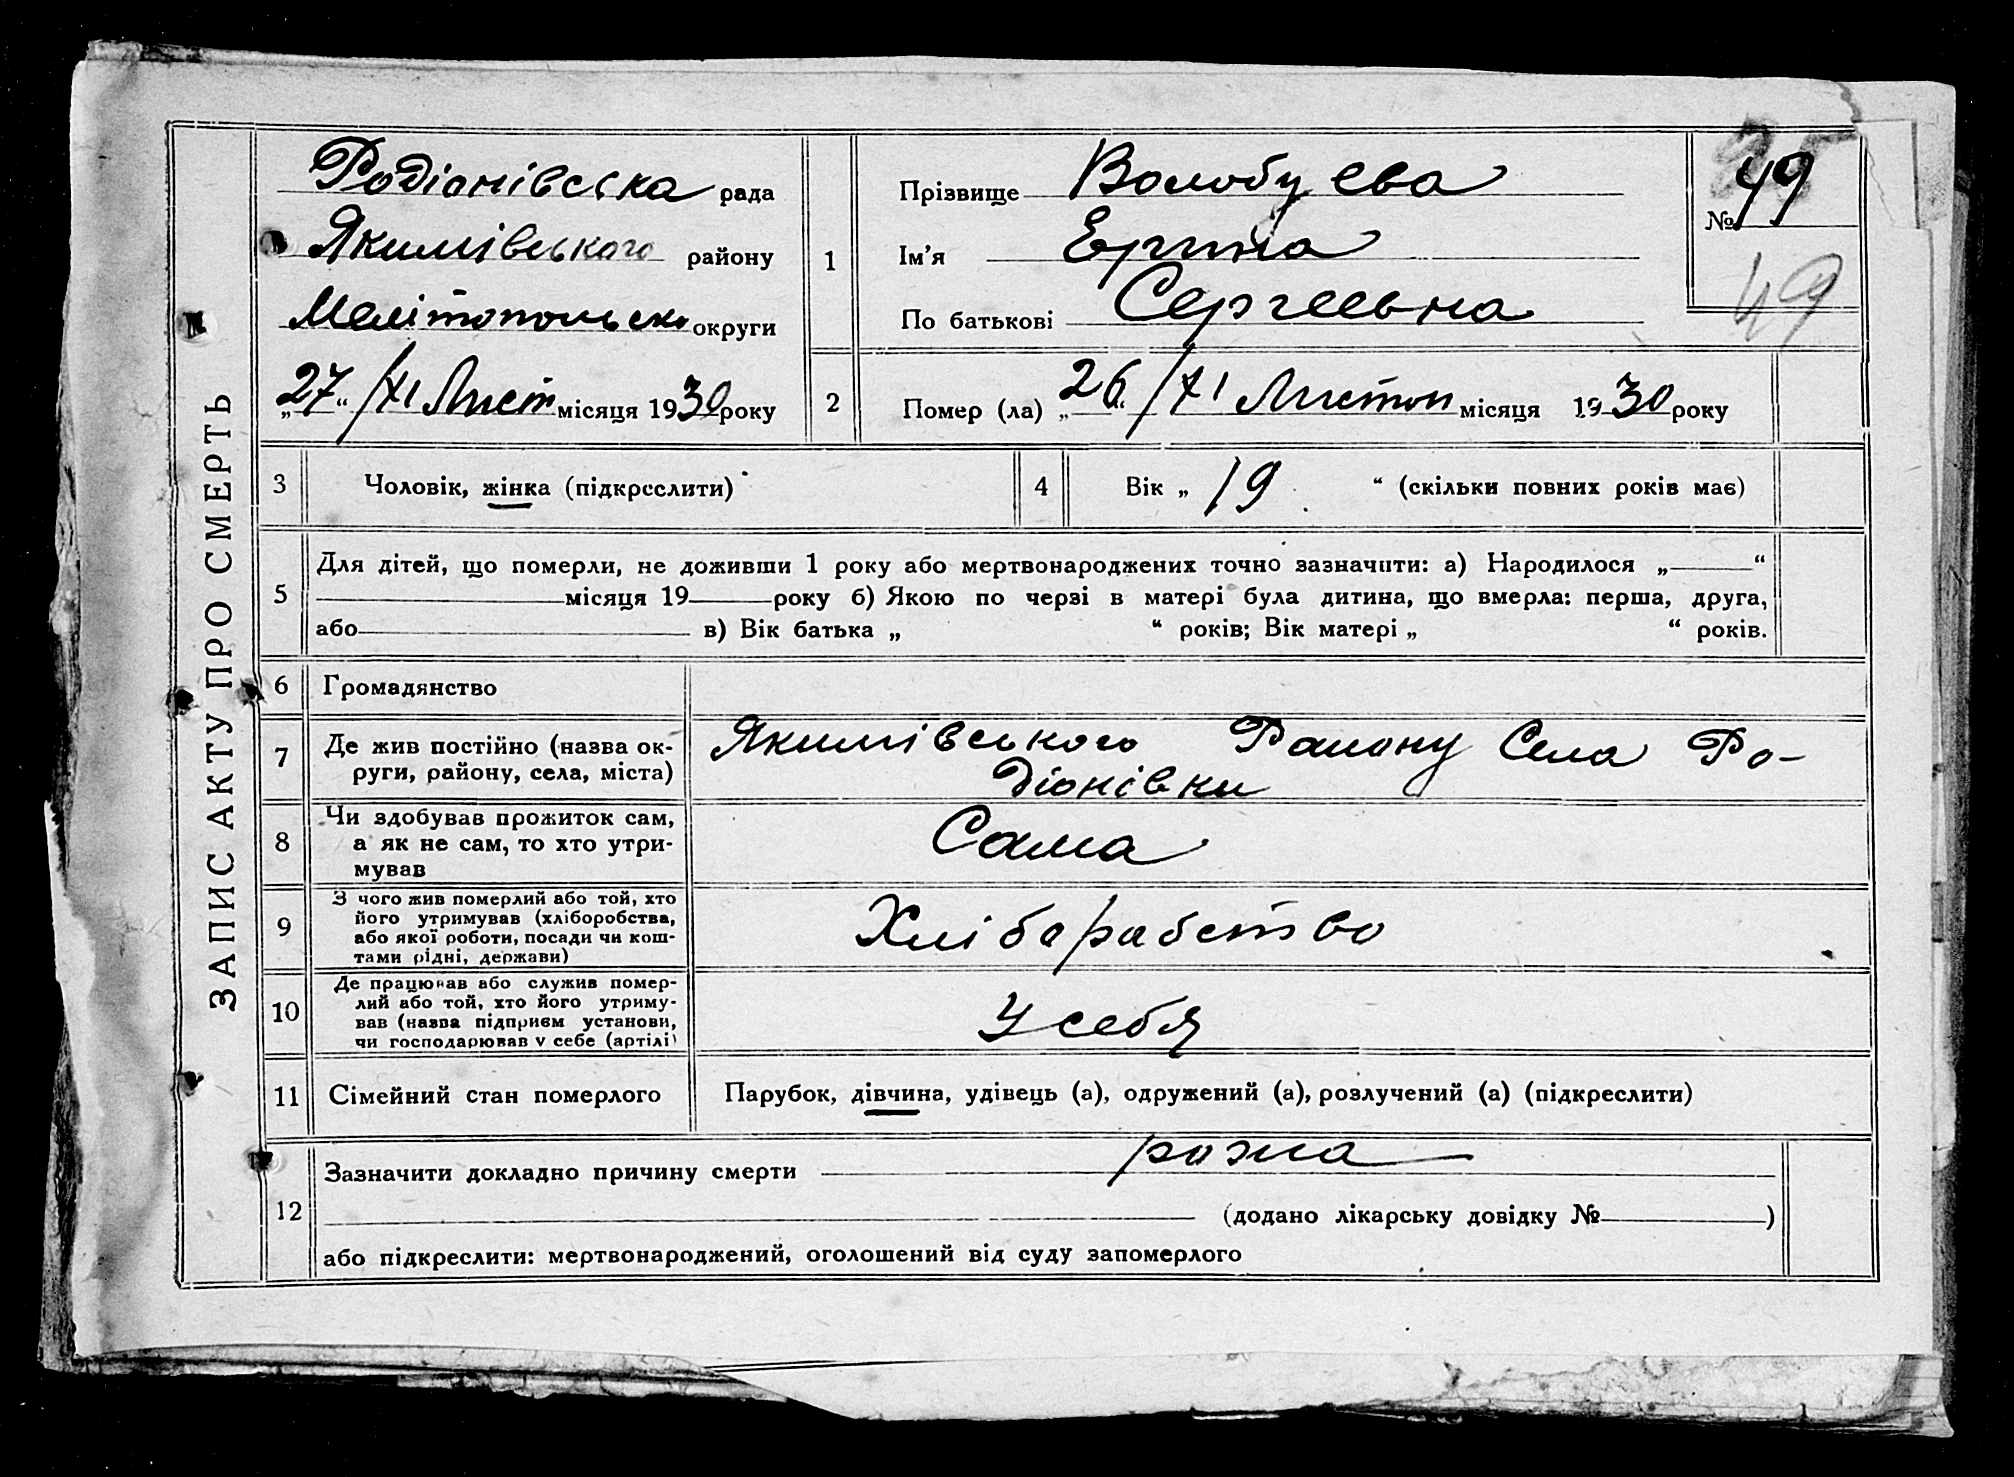 ЗАПИС АКТУ ПРО СМЕРТЬ
Родіонівська рада
Якимівського району
Мелітопольско округи
„27“ /XI Лист місяця 1930 року
1
Прізвище Волобуева
Ім'я Ерина
По батькові Сергеевна
№ 49
49
2
Помер (ла) „26“ /XI Листоп місяця 1930 року
3 Чоловік, жінка (підкреслити)
4 Вік „ 19 “ (скільки повних років має)
5
Для дітей, що померли, не доживши 1 року або мертвонароджених точно зазначити: а) Народилося „ “
місяця 19 року б) Якою по черзі в матері була дитина, що вмерла: перша, друга,
або в) Вік батька „ “ років; Вік матері „ “ років.
6 Громадянство
7 Де жив постійно (назва ок-
руги, району, села, міста)
Якимівського Району Села Ро-
діонівки
8 Чи здобував прожиток сам,
а як не сам, то хто утри-
мував
Сама
9 З чого жив померлий або той, хто
його утримував (хліборобства,
або якої роботи, посади чи кош-
тами рідні, держави)
Хлібарабство
10 Де працював або служив помер-
лий або той, хто його утриму-
вав (назва підприєм установи,
чи господарював у себе (артілі)
У себя
11 Сімейний стан померлого
Парубок, дівчина, удівець (а), одружений (а), розлучений (а) (підкреслити)
12
Зазначити докладно причину смерти рожа
(додано лікарську довідку № )
або підкреслити: мертвонароджений, оголошений від суду запомерлого